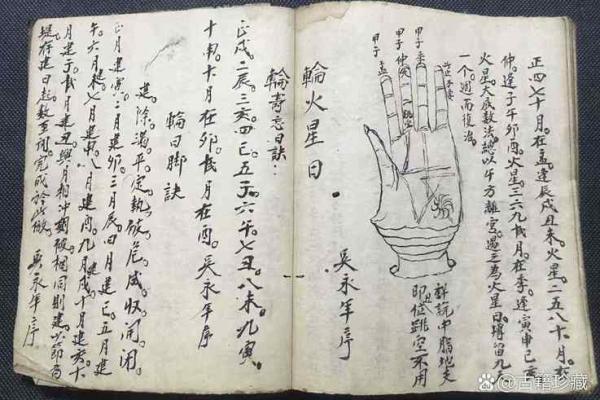 正四七十月。在孟。逢辰戌丑未火星。二五八十一月。在
仲。逢子午卯酉火星。三六九十二月。在季。逢寅申巳亥
火星。大底数法。總以午方離宮。過三為火星日。轉留九
一个。週而復始。
甲子季
甲子仲
甲子孟
輪火星日。
吳永年序
即位跳空不用
輪寄忘日訣：
正戌。二辰。三亥。四巳。五子。六午。七丑。八未。九寅。
十申。十一月在卯。十二月在酉。吳永年序
輪日脚訣
建。除。滿。平。定。執。破。危。成。收。開。閉。
正月建寅。二月建卯。三月辰。四月建巳。五月建
午。六月建未。七月建申。八月建酉。九月建戌。十月建亥。十一
月建子。十二月建丑。與月相冲則破。相同則建。
吳永年序
@古籍珍藏